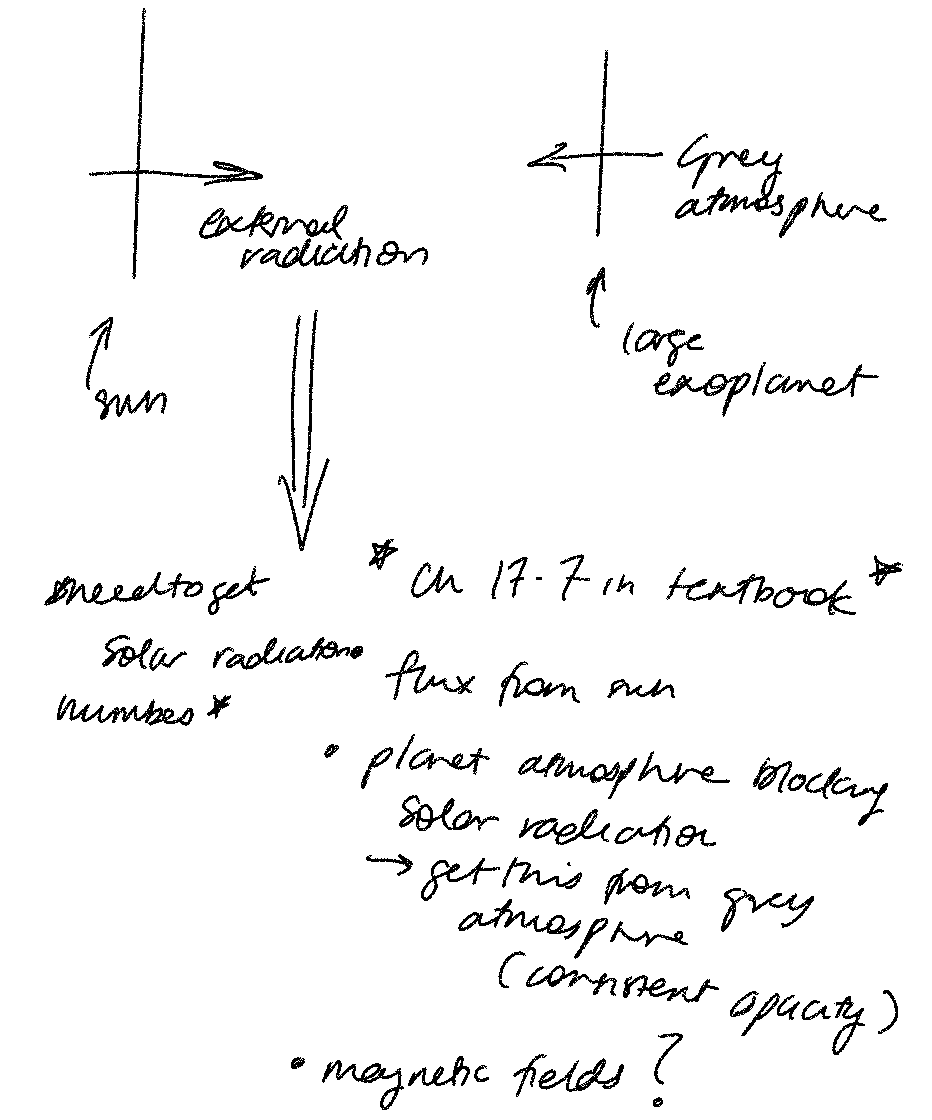 external
radiation
Grey
atmosphere
sun
large
exoplanet
*need to get
solar radiation
numbes *
* Ch 17.7 in textbook *
flux from sun
• planet atmosphre blocking
solar radiation
→ get this from grey
atmosphre
(consistent opacity)
• magnetic fields?